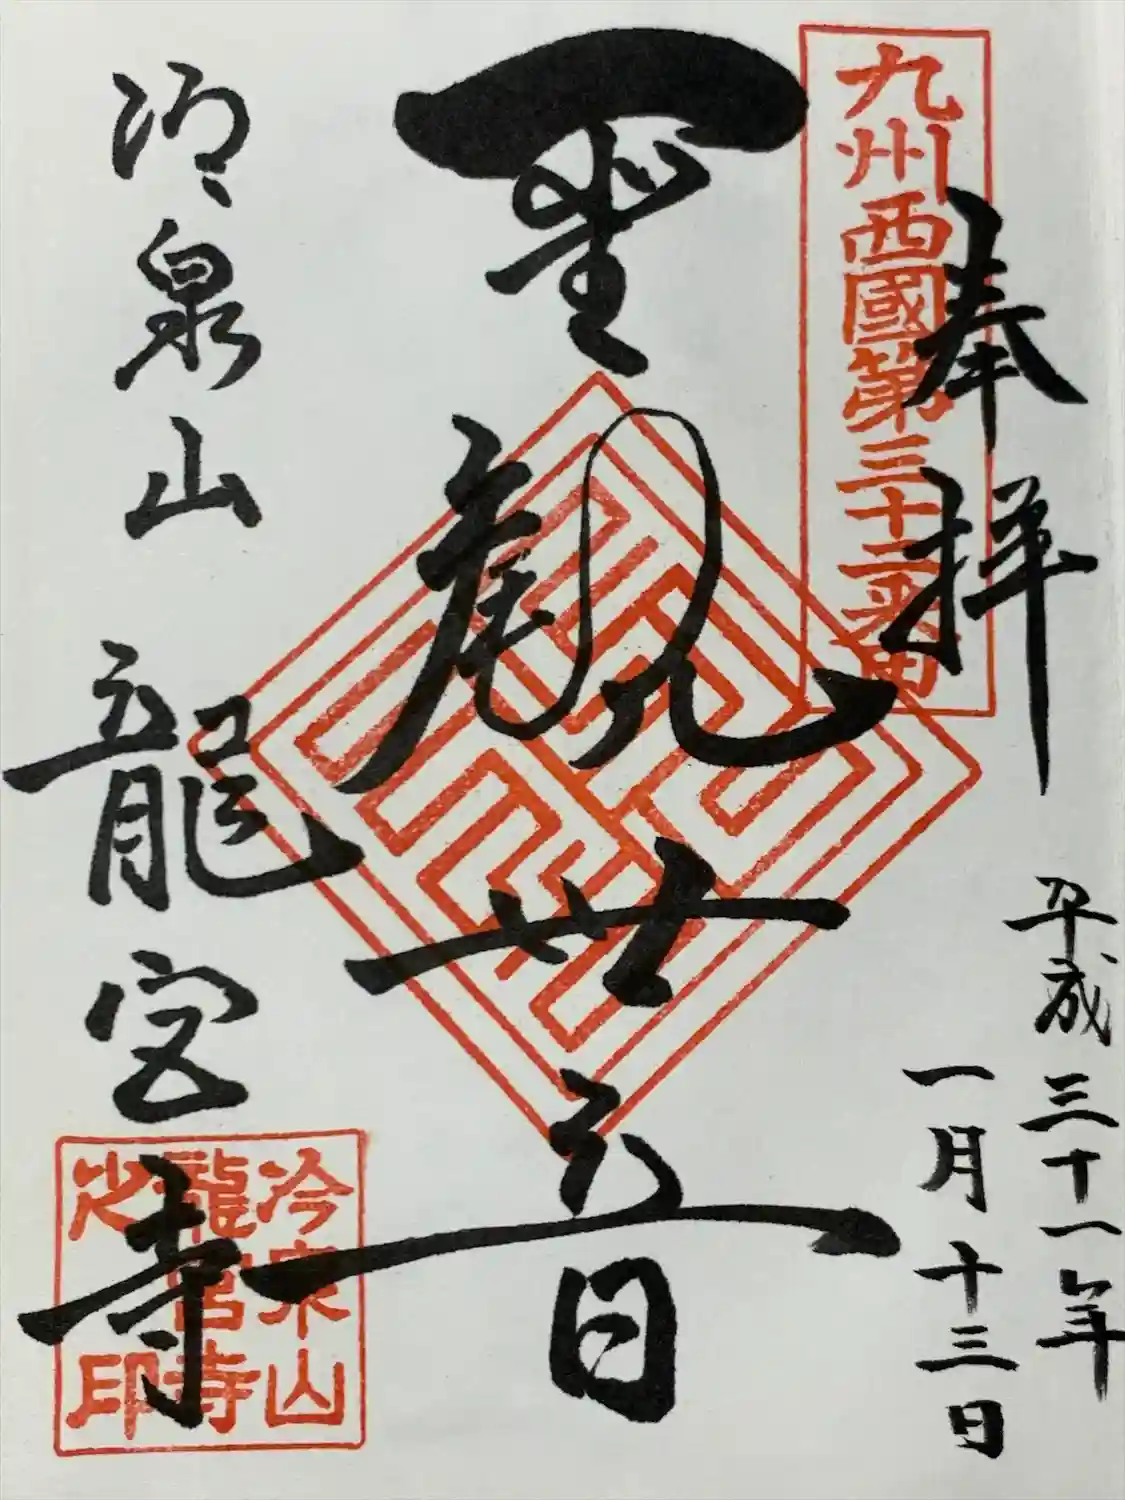 奉拝
九州西國第三十二番
平成三十一年
一月十三日
聖観世音
冷泉山 龍宮寺
冷泉山
龍宮寺
之印